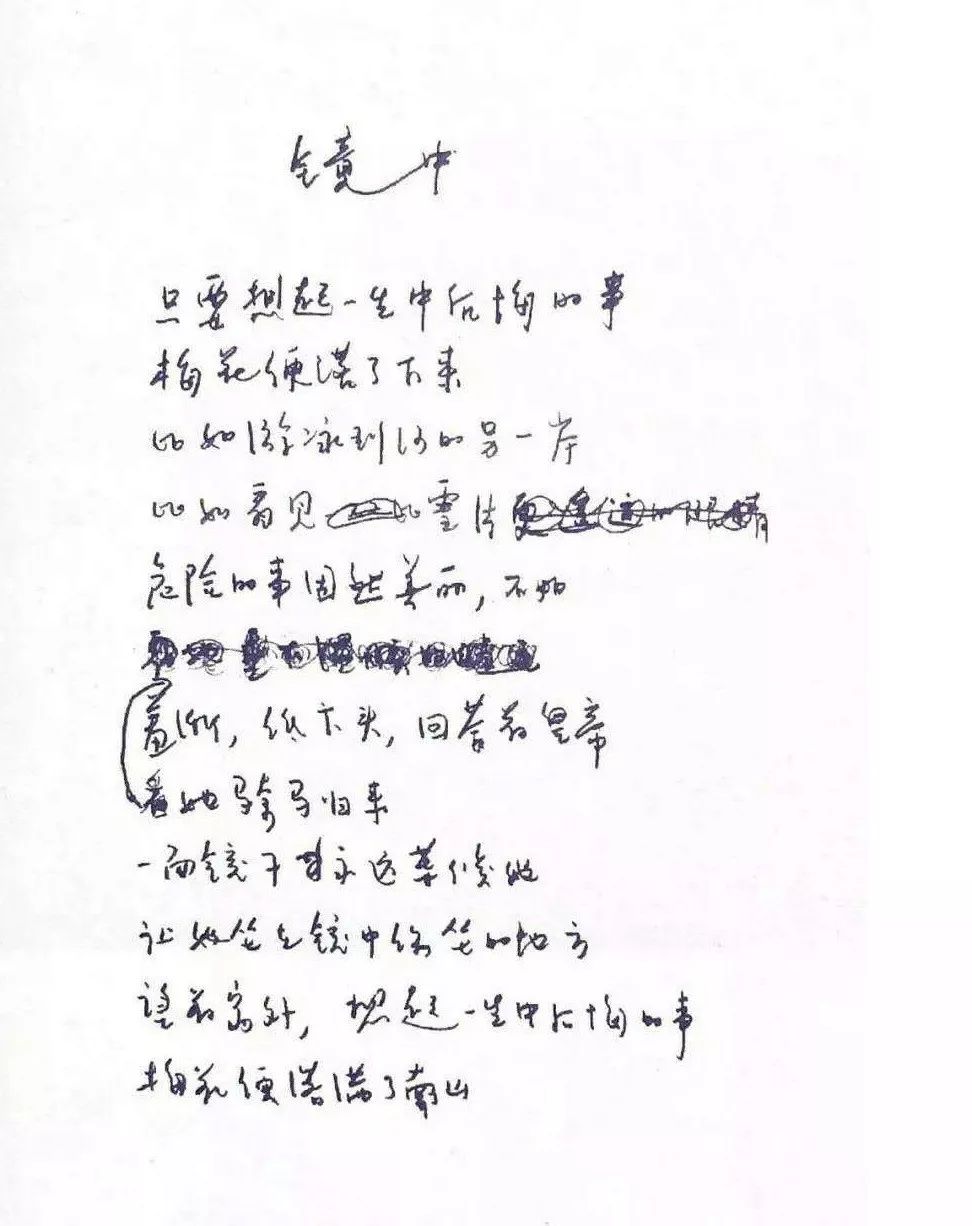 镜中
只要想起一生中后悔的事
梅花便落了下来
比如游泳到河的另一岸
比如看见比雪片更遥远的眼睛
危险的事固然美丽，不
羞惭，低下头，回答着皇帝
看她骑马归来
一面镜子永远等候她
让她坐在镜中坐的地方
望着窗外，想起一生中后悔的事
梅花便落满了南山